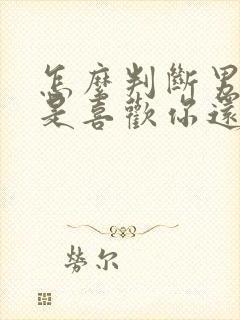 怎麼判斷男
是喜歡你還
勞尔